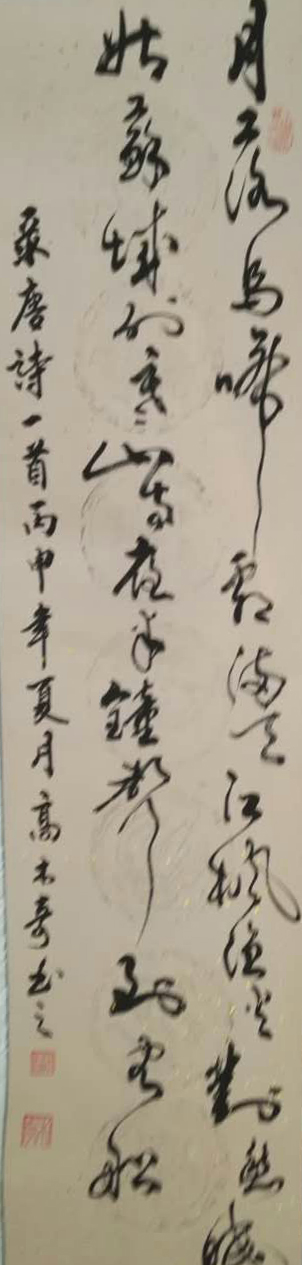 月落烏啼霜滿天江楓漁火對愁眠
姑蘇城外寒山寺夜半鐘聲到客船
录唐詩一首丙申年夏月高木奇书之